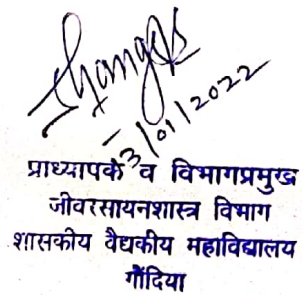 3/01/2022
प्राध्यापक व विभागप्रमुख
जीवरसायनशास्त्र विभाग
शासकीय वैद्यकीय महाविद्यालय
गोंदिया